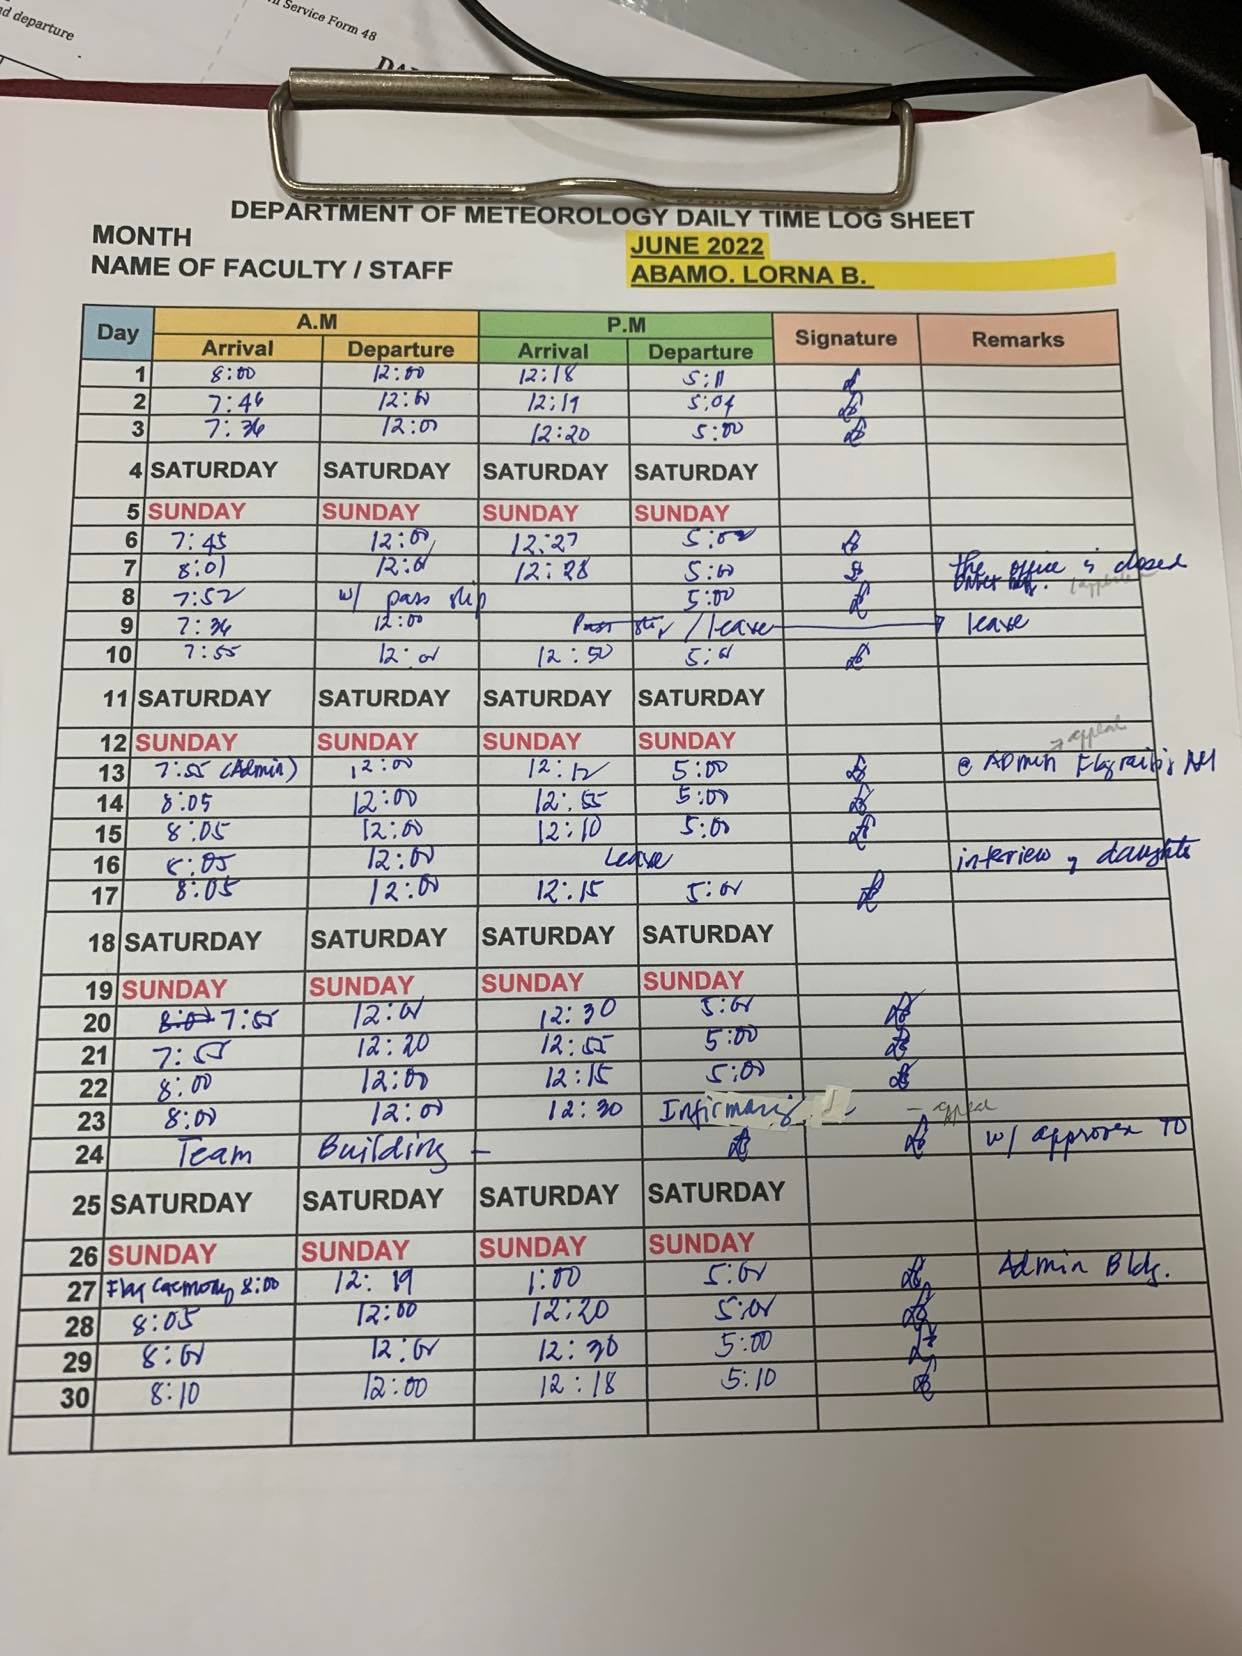 nd departure
Service Form 48
DEPARTMENT OF METEOROLOGY DAILY TIME LOG SHEET
MONTH JUNE 2022
NAME OF FACULTY / STAFF ABAMO. LORNA B.
Day A.M P.M Signature Remarks
Arrival Departure Arrival Departure
1 8:00 12:00 12:18 5:11
2 7:46 12:00 12:19 5:04
3 7:36 12:00 12:20 5:00
4 SATURDAY SATURDAY SATURDAY SATURDAY
5 SUNDAY SUNDAY SUNDAY SUNDAY
6 7:45 12:00 12:27 5:00
7 8:01 12:01 12:28 5:00 the office is closed
8 7:52 w/ pass slip 5:00
9 7:36 12:00 / leave leave
10 7:55 12:01 12:50 5:01
11 SATURDAY SATURDAY SATURDAY SATURDAY
12 SUNDAY SUNDAY SUNDAY SUNDAY
appeal
13 7:55 (Admin) 12:00 12:12 5:00 @ Admin Flag raising
14 8:05 12:00 12:55 5:00
15 8:05 12:00 12:10 5:00
16 8:05 12:00 Leave interview of daughter
17 8:05 12:00 12:15 5:01
18 SATURDAY SATURDAY SATURDAY SATURDAY
19 SUNDAY SUNDAY SUNDAY SUNDAY
20 7:55 12:01 12:30 5:01
21 7:55 12:20 12:55 5:00
22 8:00 12:00 12:15 5:00
23 8:00 12:00 12:30 Infirmary - appeal
24 Team Building - w/ approved TO
25 SATURDAY SATURDAY SATURDAY SATURDAY
26 SUNDAY SUNDAY SUNDAY SUNDAY
27 Flag Ceremony 8:00 12:19 1:00 5:01 Admin Bldg.
28 8:05 12:00 12:20 5:01
29 8:01 12:01 12:30 5:00
30 8:10 12:00 12:18 5:10